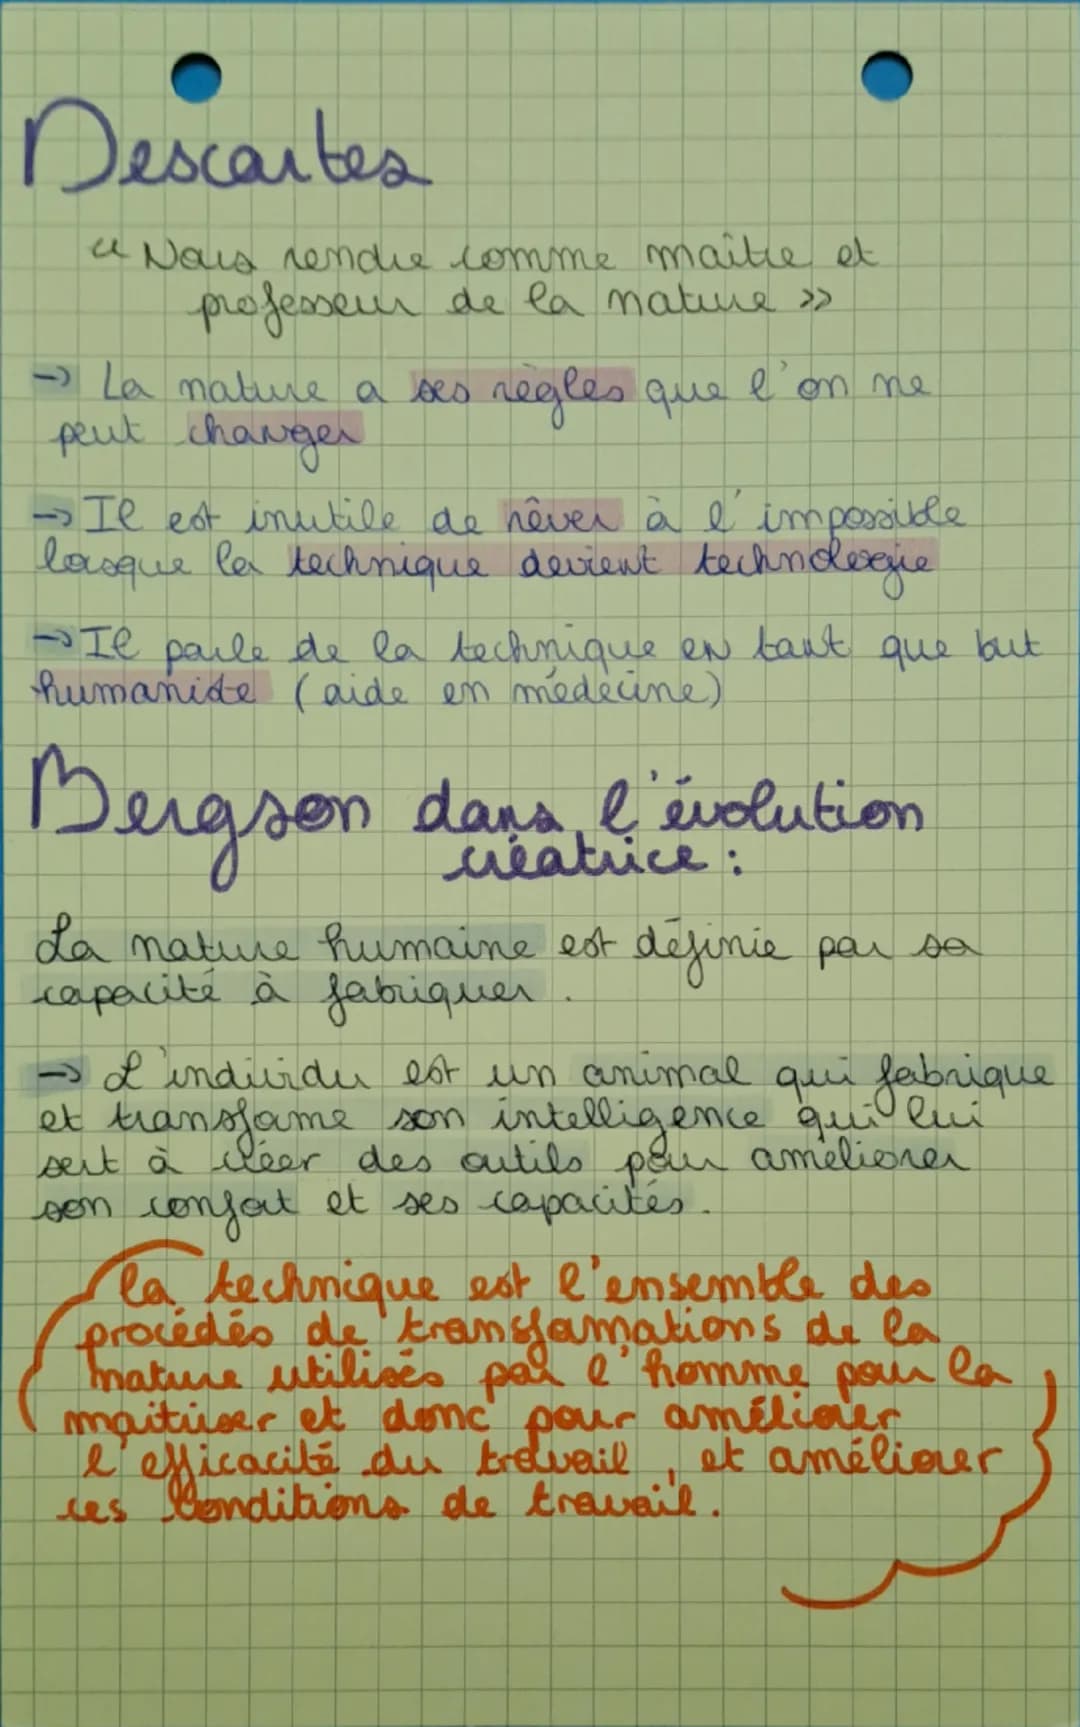 Descartes
« Nous rendre comme maître et
professeur de la nature »
→ La nature a ses règles que l'on ne
peut changer
→ Il est inutile de rêver à l'impossible
lorsque la technique devient technologie
→ Il parle de la technique en tant que but
humaniste (aide en médecine)
Bergson dans l'évolution
créatrice :
La nature humaine est définie par sa
capacité à fabriquer.
→ L'individu est un animal qui fabrique
et transforme son intelligence qui lui
sert à créer des outils pour améliorer
son confort et ses capacités.
la technique est l'ensemble des
procédés de transformations de la
nature utilisés par l'homme pour la
maîtriser et donc pour améliorer
l'efficacité du travail, et améliorer
ces conditions de travail.